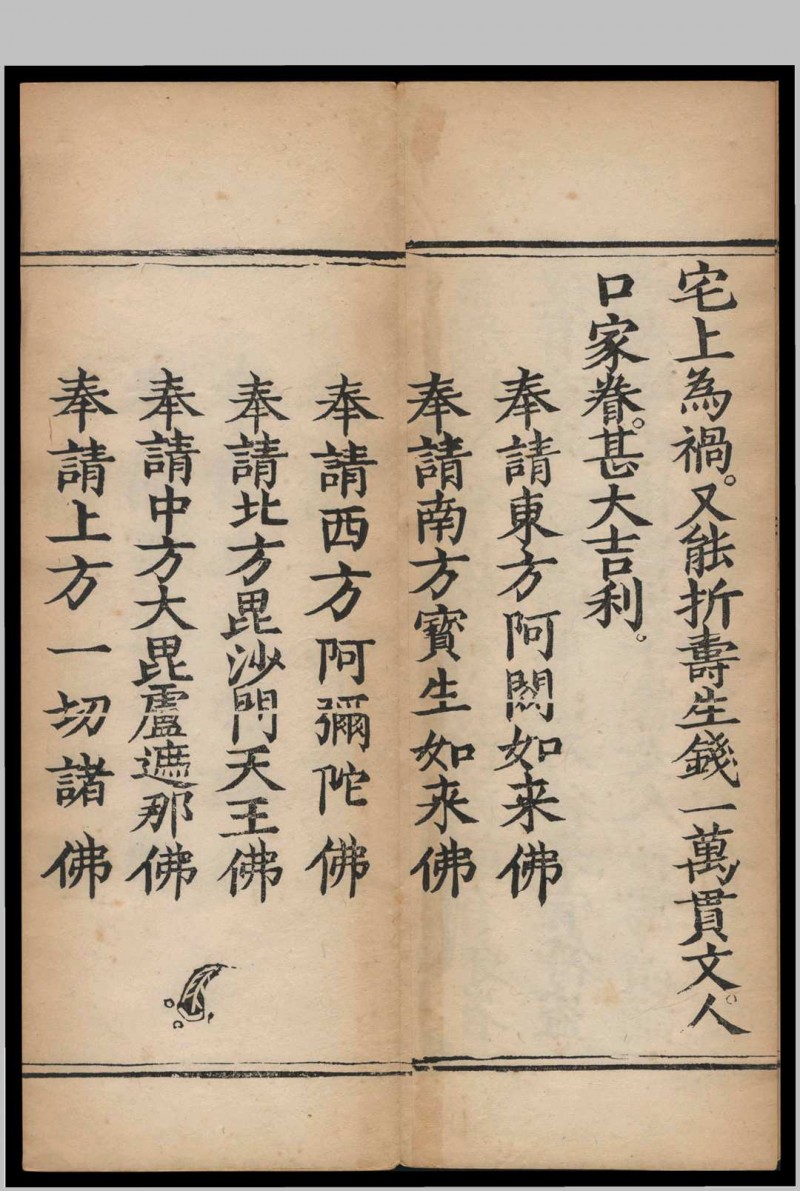 宅上為禍。又能折壽生錢一萬貫文。人
口家眷。甚大吉利。
奉請東方阿閦如来佛
奉請南方寳生如来佛
奉請西方阿彌陀佛
奉請北方毘沙門天王佛
奉請中方大毘盧遮那佛
奉請上方一切諸佛